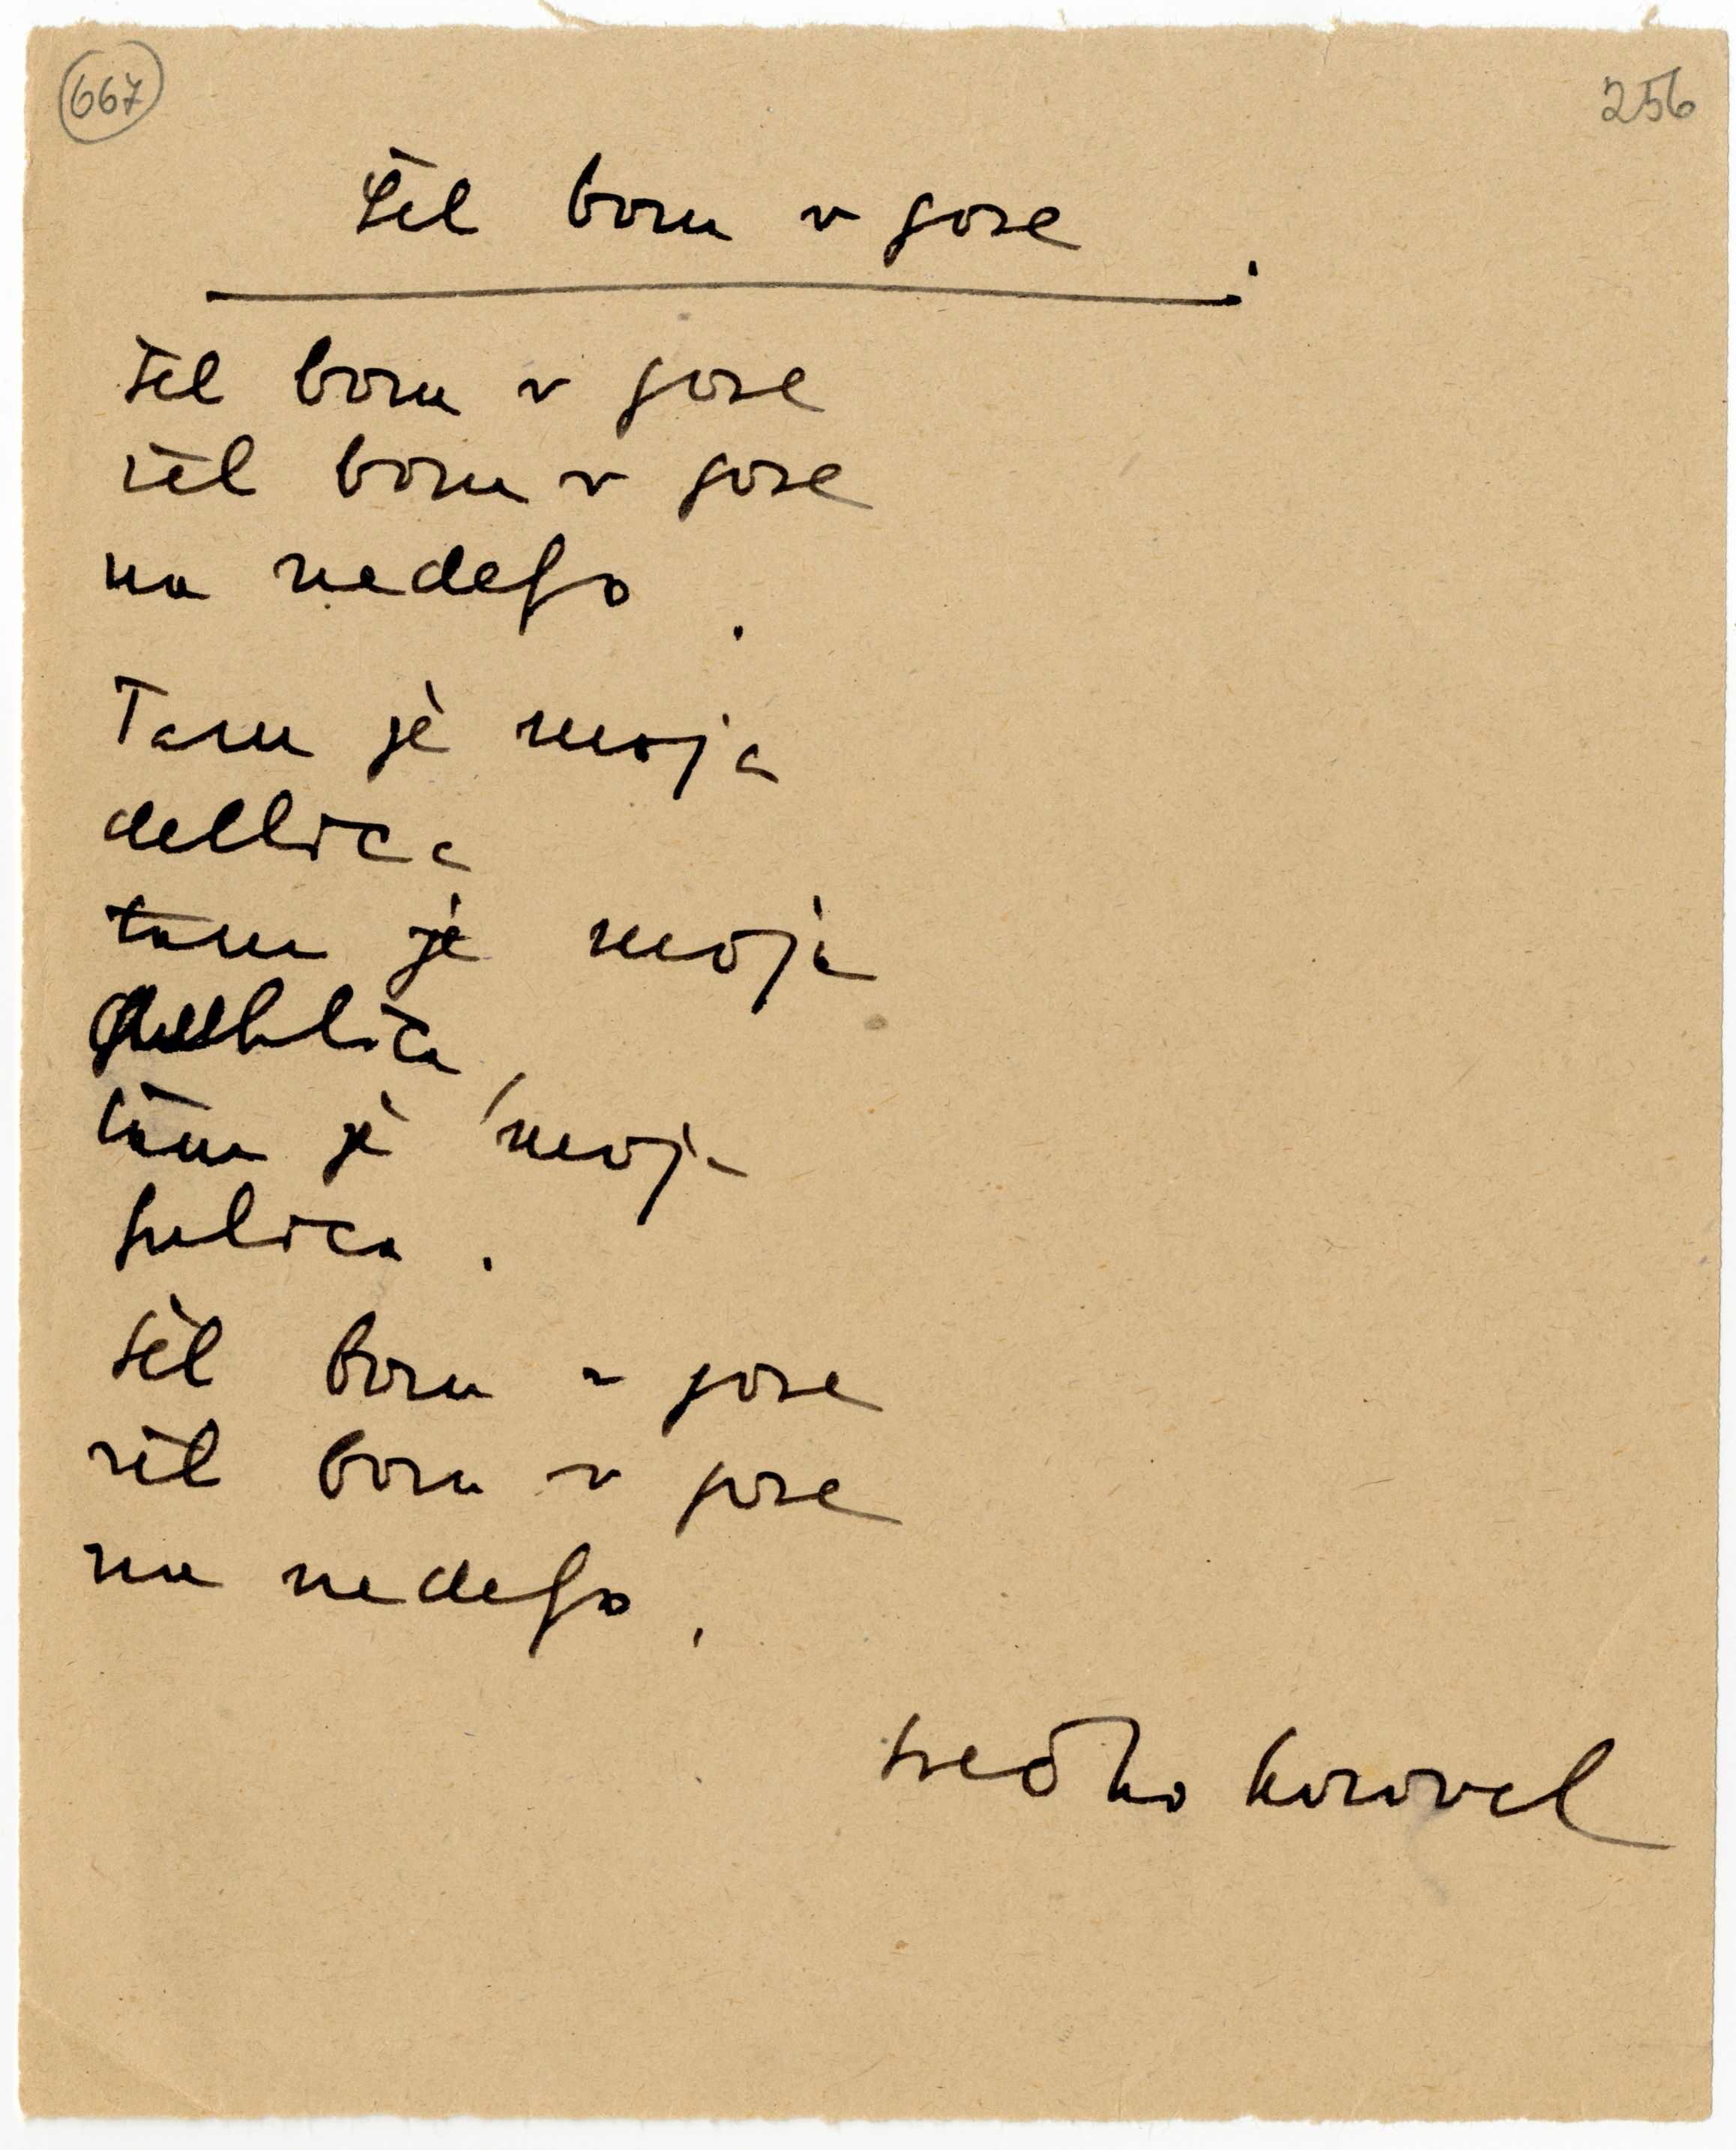 667
256
Šel bom v gore.
Šel bom v gore
šel bom v gore
na nedeljo.
Tam je moja
deklica
tam je moja
tam je moja
Šel bom v gore
šel bom v gore
na nedeljo.
Srečko Kosovel